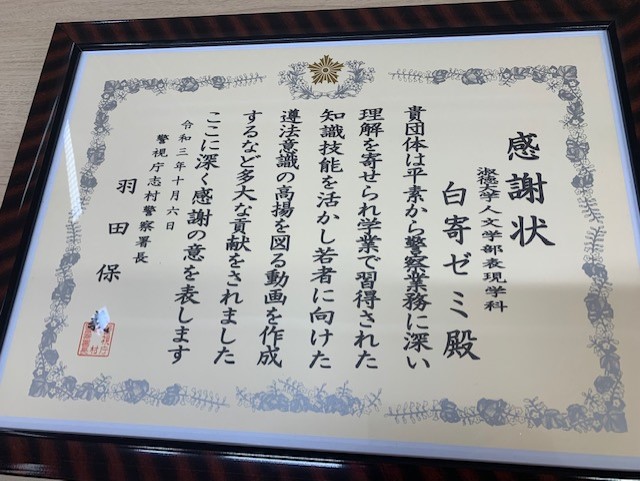 感謝状
淑徳大学人文学部表現学科
白寄ゼミ殿
貴団体は平素から警察業務に深い
理解を寄せられ学業で習得された
知識技能を活かし若者に向けた
遵法意識の高揚を図る動画を作成
するなど多大な貢献をされました
ここに深く感謝の意を表します
令和三年十月六日
警視庁志村警察署長
羽田保